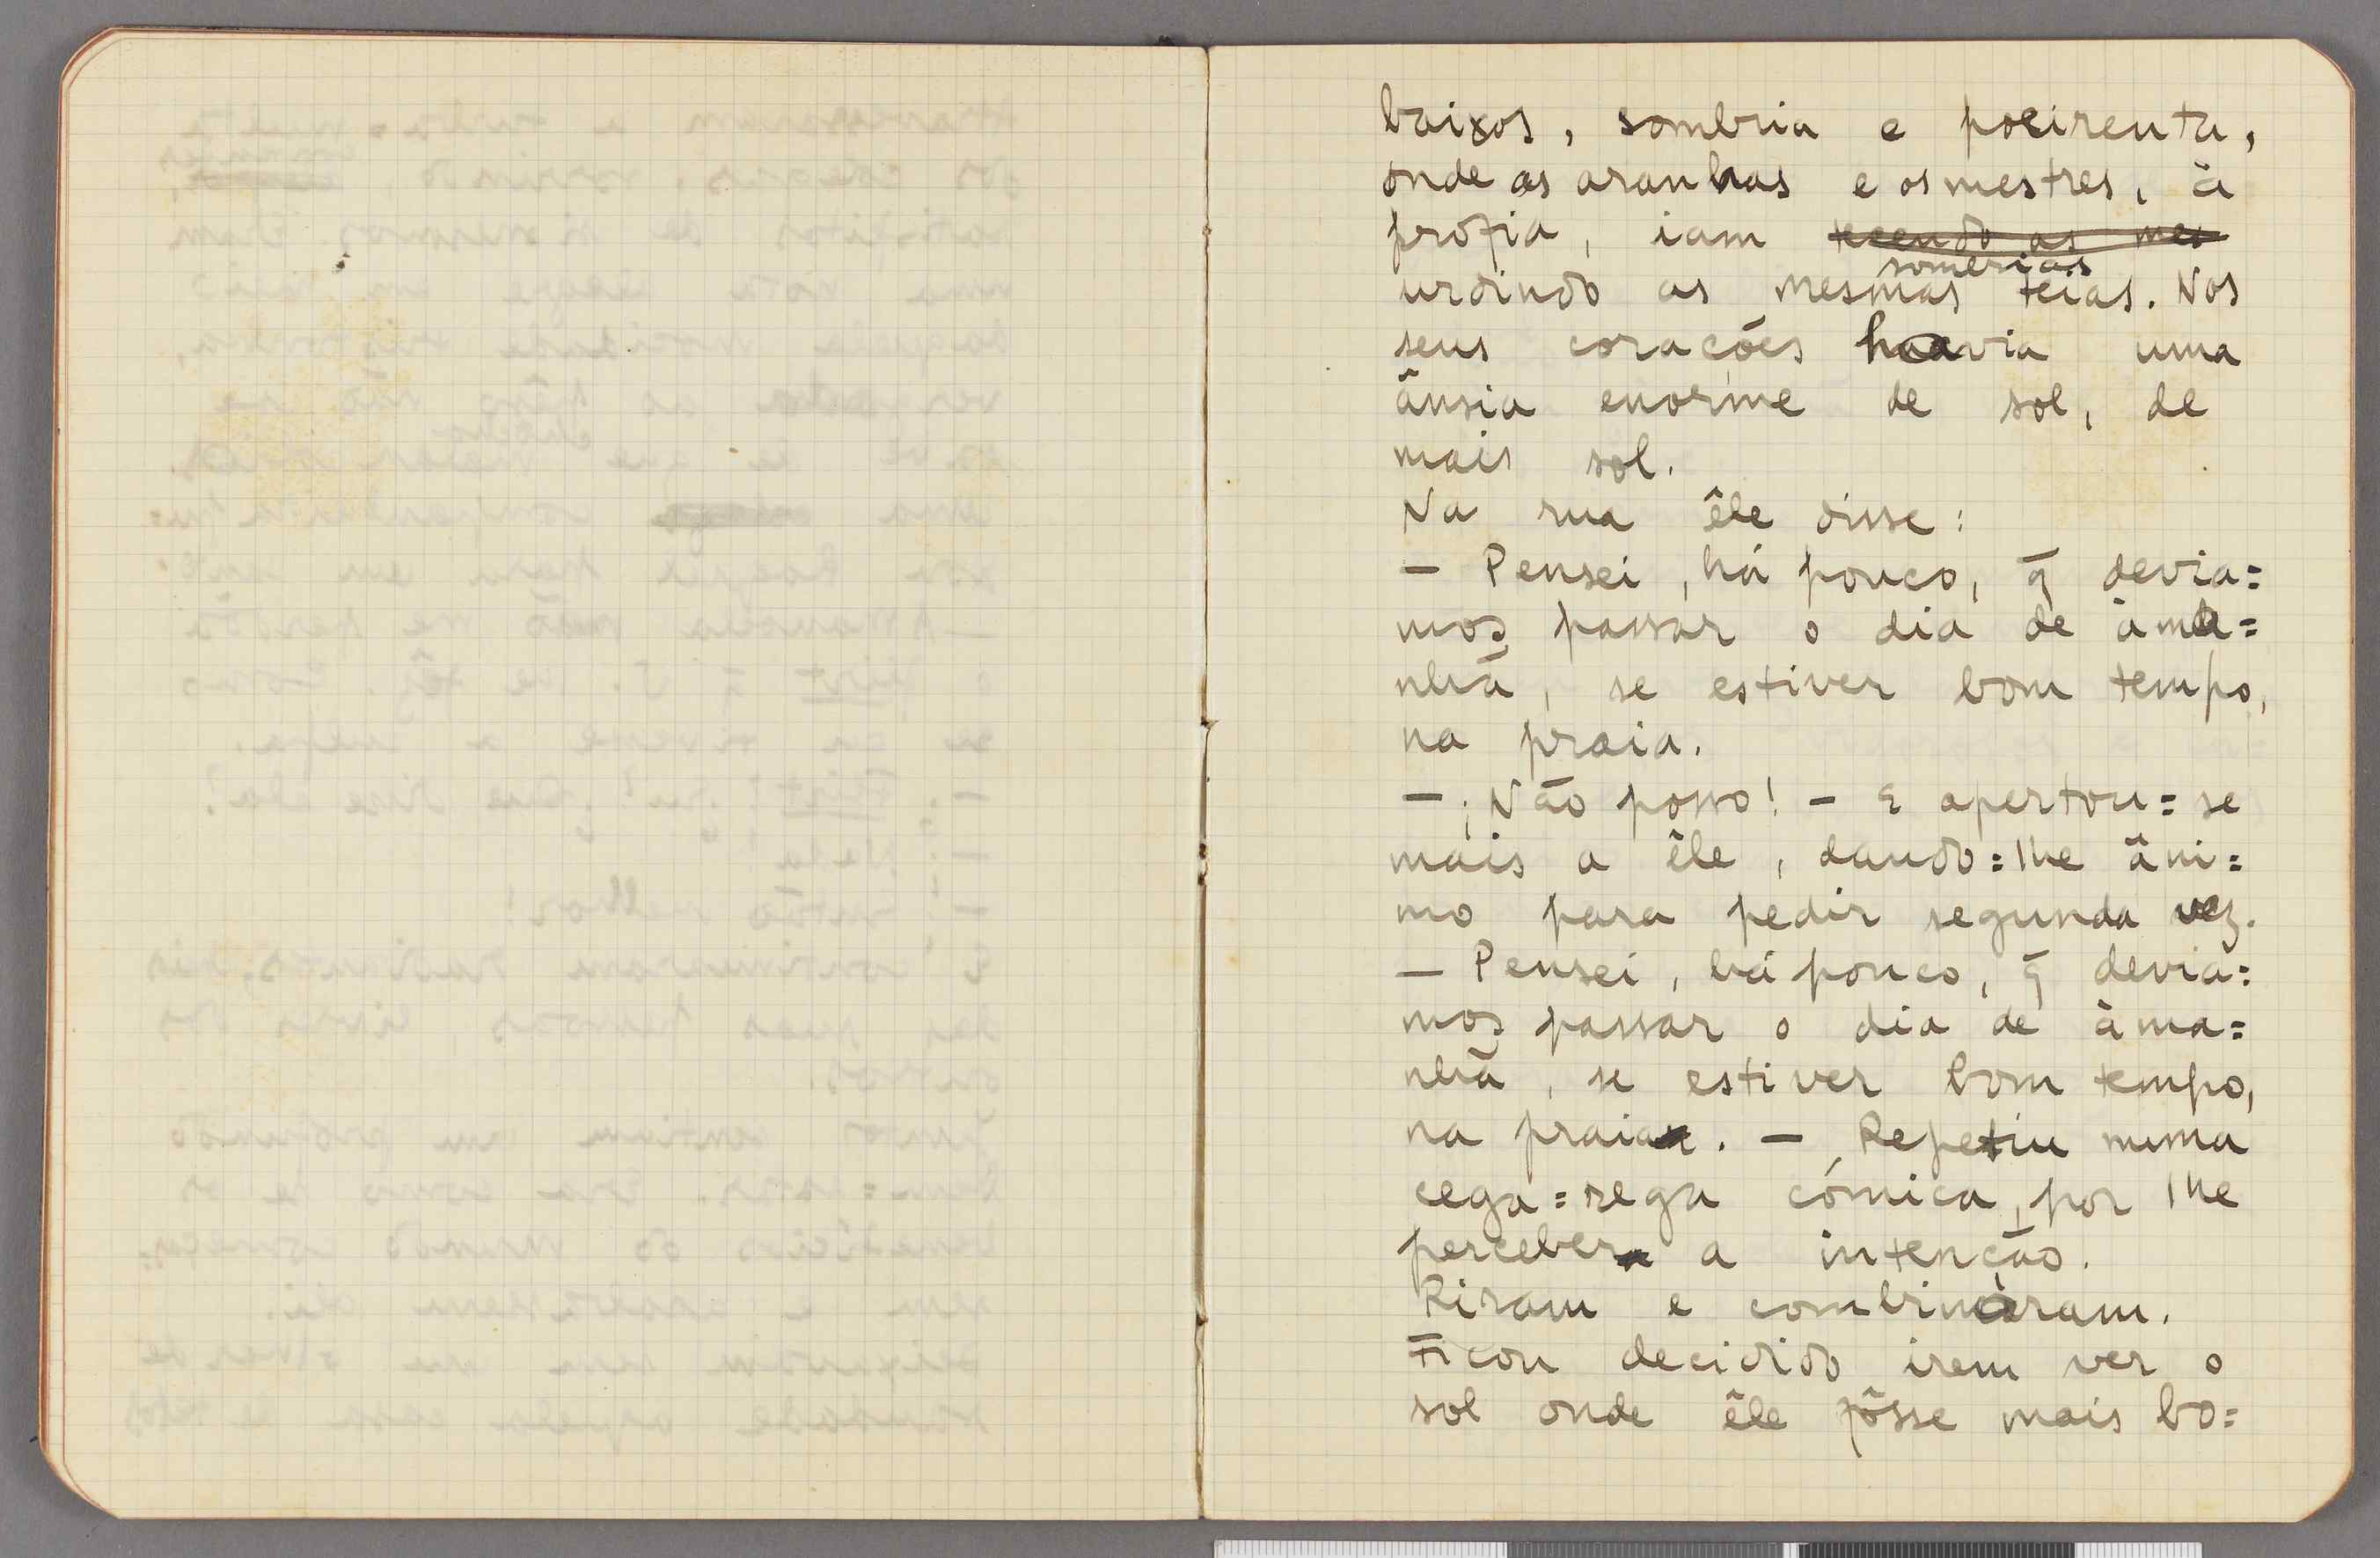 baixos, sombria e poeirenta,
onde as aranhas e os mestres, à
profia, iam tecendo as mes
sombrias
urdindo as mesmas teias. Nos
seus corações havia uma
ânsia enorme de sol, de
mais sol.
Na rua êle disse:
— Pensei, há pouco, q̄ devia=
mos passar o dia de àma=
nhã, se estiver bom tempo,
na praia.
— ¡Não posso! — E apertou=se
mais a êle, dando=lhe âni=
mo para pedir segunda vez.
— Pensei, há pouco, q̄ devia=
mos passar o dia de àma=
nhã, se estiver bom tempo,
na praia. — Repetiu numa
cega=rega cómica, por lhe
perceber a intenção.
Riram e combinàram.
Ficou decidido irem ver o
sol onde êle fôsse mais bo=